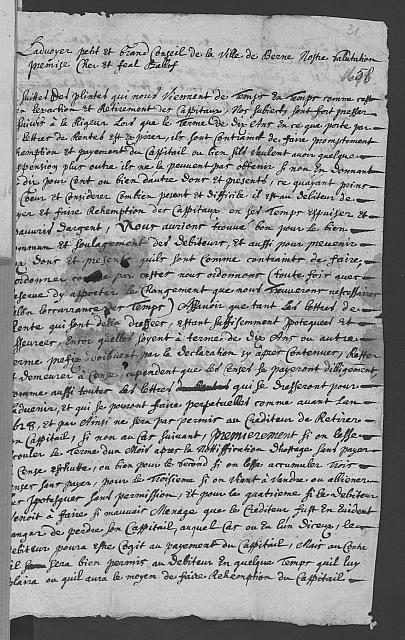 31.
Ladvoyer petit et Grand Conseil de la Ville de Berne Nostre Salutation
premise Cher et feal Ballif
1658
Suittes des plintes qui nous Viennent de Temps en Temps comme cest
en lexaction et Retirement des Cappitaux, Nos Subiects sont fort presser
suivir à la Rigeur Lors que le Terme de dix Ans en ce que porte par
lettres de Rentes est expirer, ils sont contrainct de faire promptement
Rehemption et payement du Cappitail ou bien sils veulent avoir quelque
suspension plus outre ils ne la peuvent pas obtenir, si non en donnant
dix pour Cent ou bien dautre dons et presents, ce quayant prins
Coeur et Considerer Combien pesent et difficile il est au debiteur de
payer et faire Rehemption des Cappitaux en ses Temps espuiser et
pauvris dargent, Nous aurions trouvé bon pour le bien
commun et soulagement des debiteurs, et aussi pour prevenir
dons et present quils sont comme contraints de faire,
ordonner comme par cestes nous ordonnons (toute fois avec
reserve dy apporter le Changement que nous trouverons necessaires
selon loccurrance des Temps) Assavoir que tant les lettres de
Rente qui sont desia dresseez, estant suffisemment ypotequees et
asseurees, Encor quelles soyent à terme de dix Ans ou autre
terme prefix doibvent par la declaration cy apres Contenue, Rester
et demeurer à Cense, cependent que les Censes se payeront diligement
comme aussi toutes les lettres qui se dresseront pour
Ladvenir, et qui se pouront faire perpetuelles comme avant lan
1628, et par Ainsi ne sera par permis au Crediteur de Retirer
son Cappitail, si non au Cas suivant, premierement si on lesse
ecouler le Terme dun Mois apres la Nottiffication dhostage sans payer
Cense escheute, ou bien pour le second si on lesse accumuler trois
Censes sans payer, pour le Troisieme si on vient à vendre ou alliener
les ypoteques sans permission, et pour les quatrieme si le debiteur
venoit à faire si mauvais Menage que le Crediteur fust en Evident
dangar de perdre son Cappitail, auquel cas ou En lun diceux, le
debiteur poura estre Cogit au payement du Cappitail, Mais au Contre
il sera bien permis au debiteur En quelque Temps quil luy
plaira ou quil aura le moyen de faire Rehemption du Cappitail